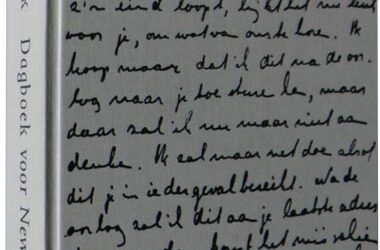 Dagboek voor New
z'n eind loopt, lijkt het me leuk
voor je, om wat van ons te horen. Ik
hoop maar dat ik dit na de oor-
log naar je toe sturen kan, maar
daar zal ik nu maar niet aan
denken. Ik zal maar net doe alsof
dit je in ieder geval bereikt. Na de
oorlog zal ik dit aan je laatste adres
het mij